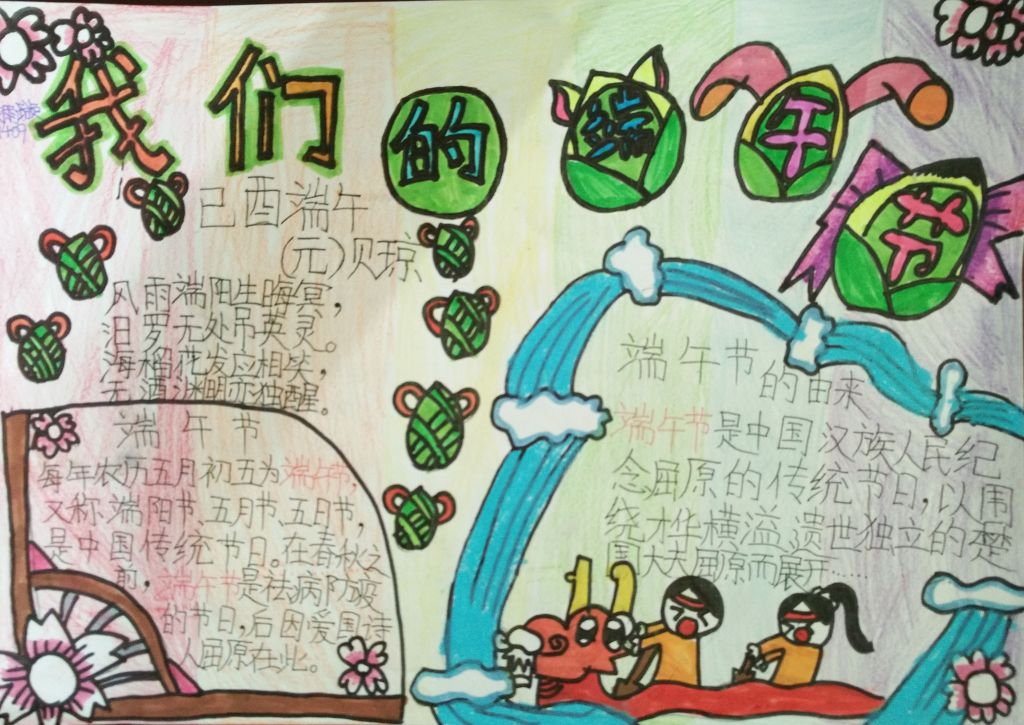 我们的端午节
1409
己酉端午
(元)贝琼
风雨端阳生晦冥，
汨罗无处吊英灵。
海榴花发应相笑，
无酒渊明亦独醒。
端午节
每年农历五月初五为端午节，
又称端阳节、五月节、五日节，
是中国传统节日。在春秋之
前，端午节是祛病防疫
的节日，后因爱国诗
人屈原在此。
端午节
的由来
端午节是中国汉族人民纪
念屈原的传统节日，以围
绕才华横溢、遗世独立的楚
国大夫屈原而展开……